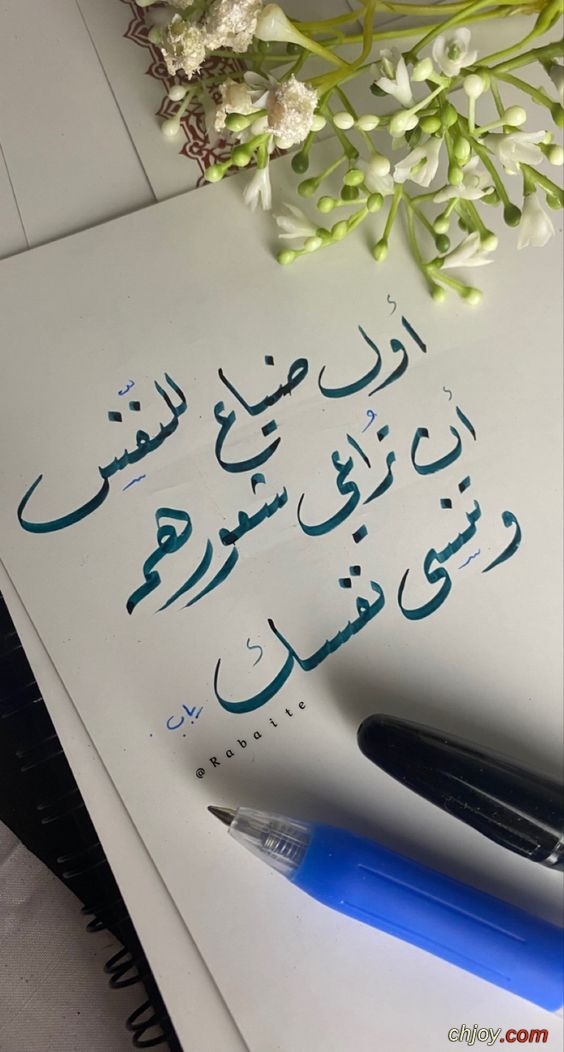 أول ضياع للنفّس
أن تُراعي شعورهم
وتنسى نفسك
رباب.
@Rabaite
chjoy.com